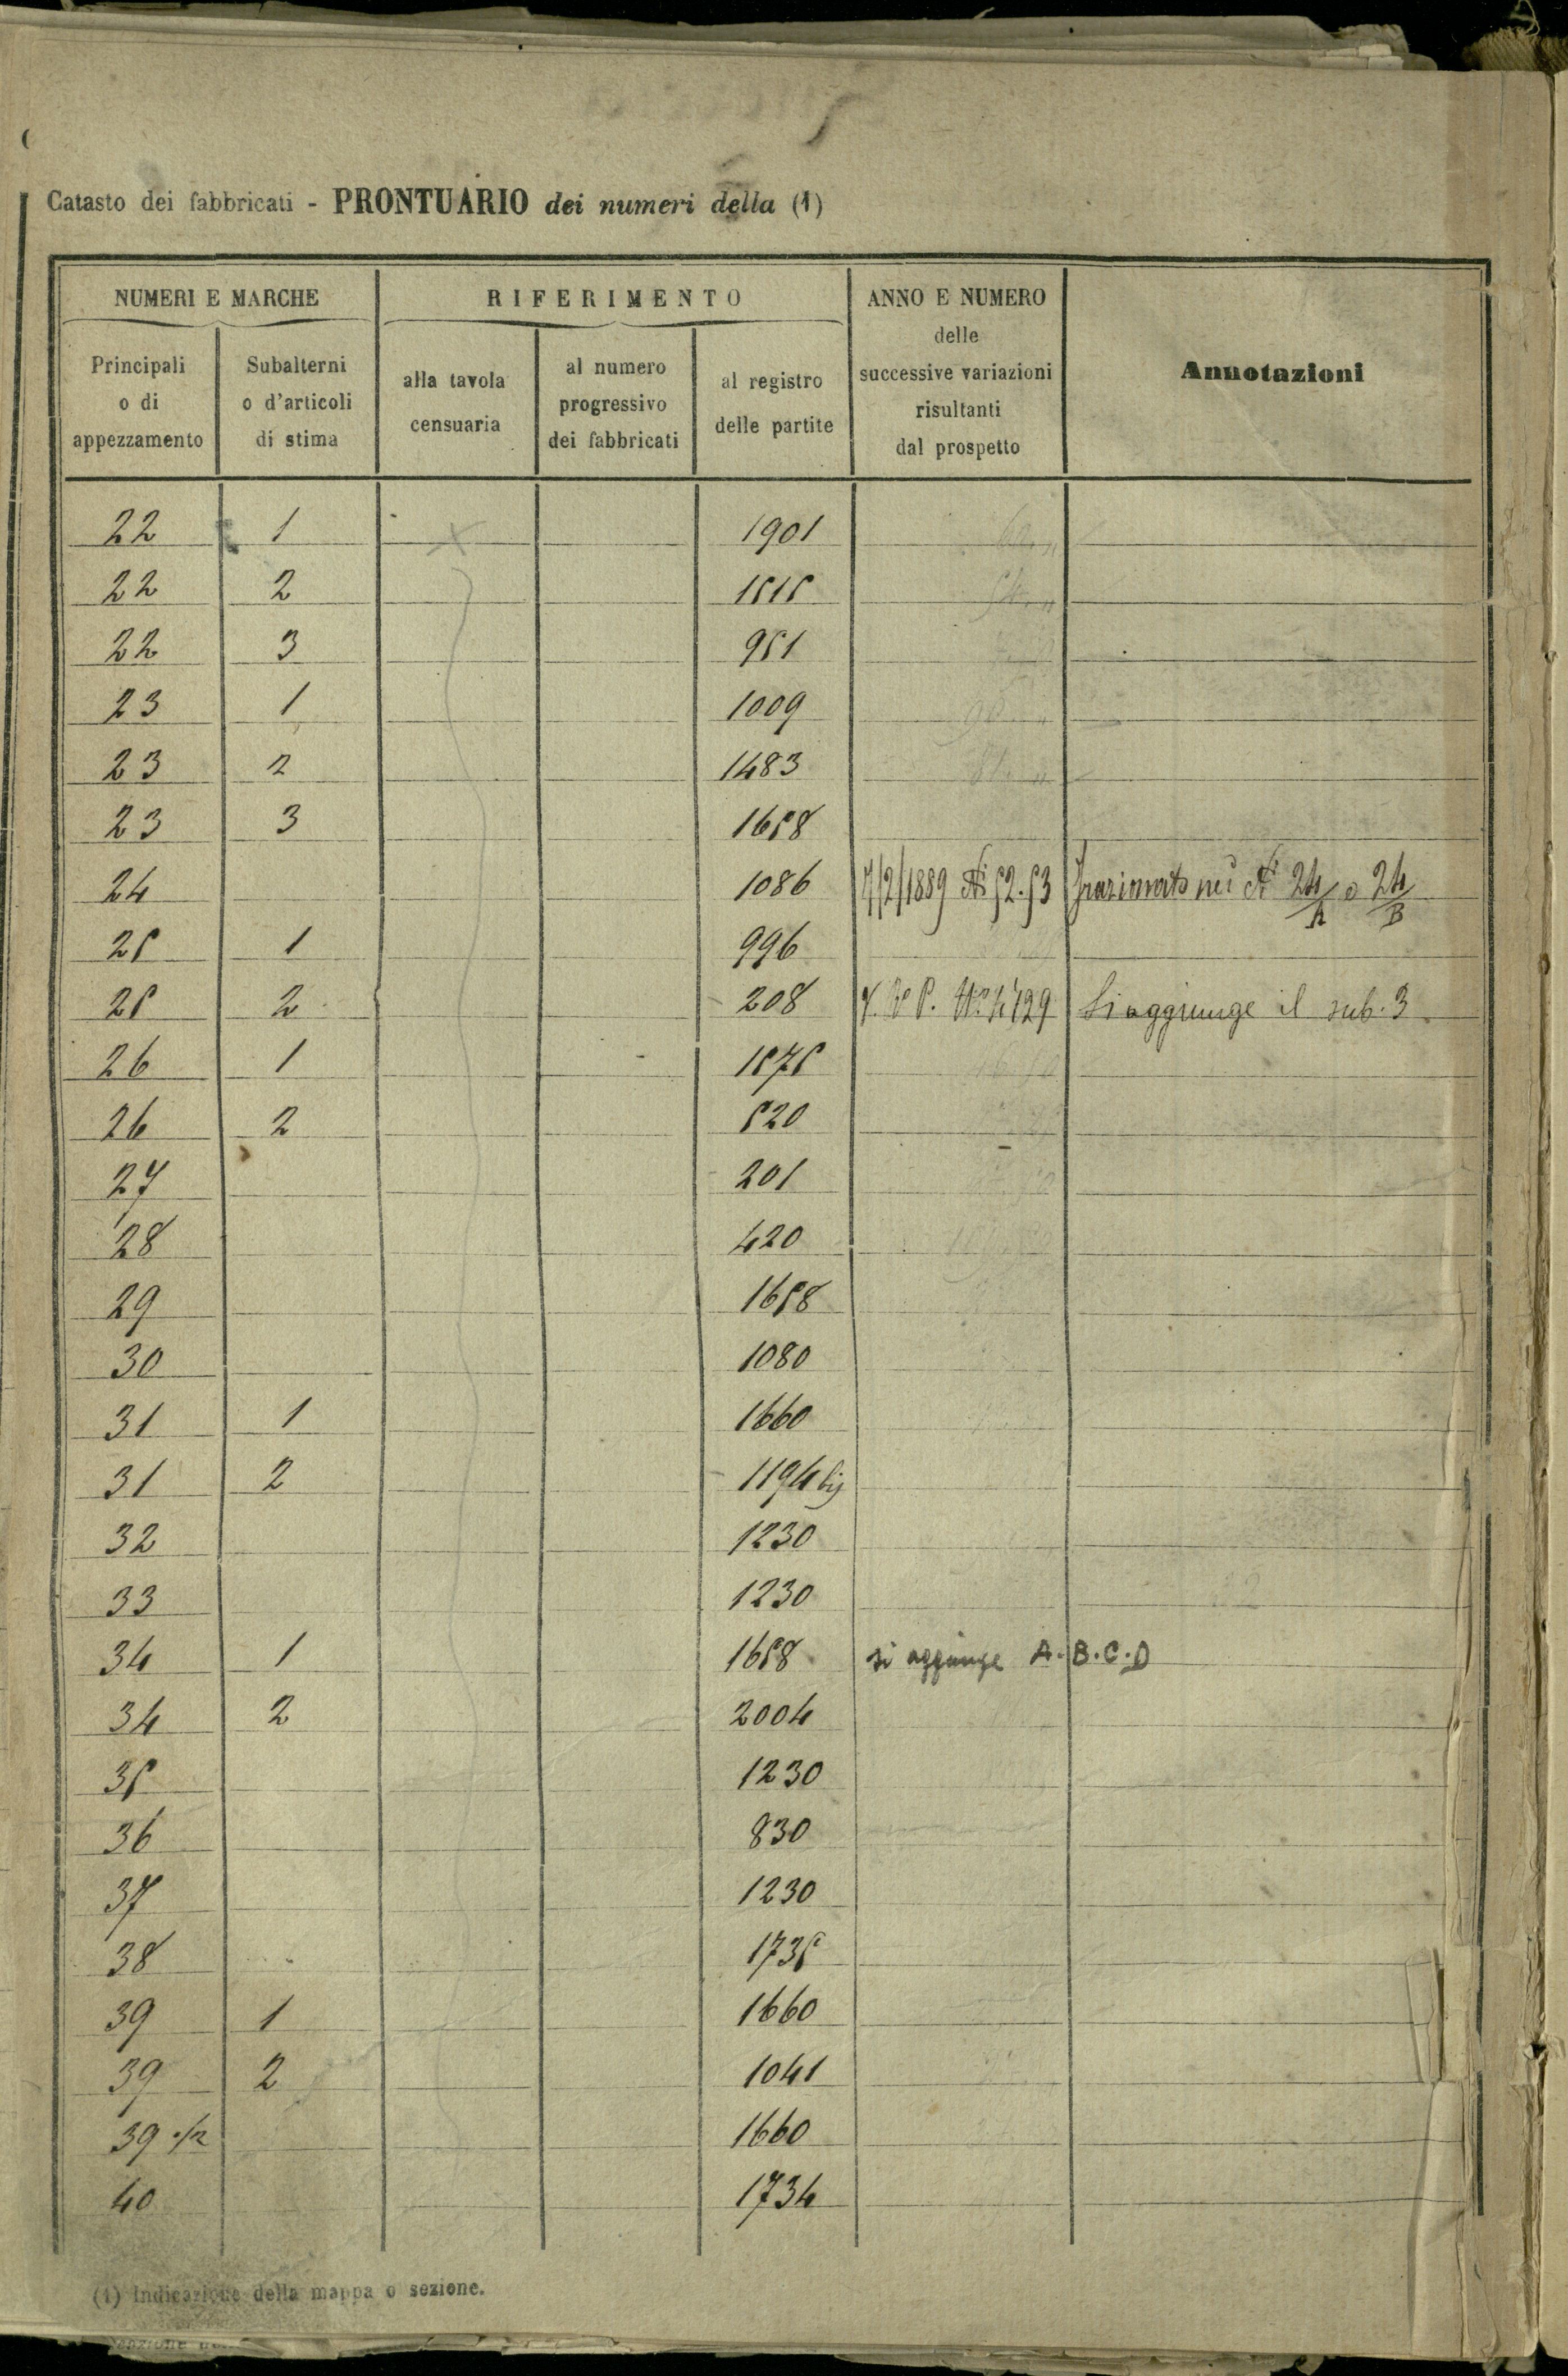 Catasto dei fabbricati - PRONTUARIO dei numeri della (1)
NUMERI E MARCHE
RIFERIMENTO
ANNO E NUMERO
delle
successive variazioni
risultanti
dal prospetto
Annotazioni
Principali
o di
appezzamento
Subalterni
o d'articoli
di stima
alla tavola
censuaria
al numero
progressivo
dei fabbricati
al registro
delle partite
22 1 1901
22 2 1515
22 3 951
23 1 1009
23 2 1483
23 3 1658
24 1086 7/2/1889 Ni 52.53 Frazionato nei Ni 24/A e 24/B
25 1 996
25 2 208 Si aggiunge il sub. 3
26 1 1575
26 2 520
27 201
28 420
29 1658
30 1080
31 1 1660
31 2 1194 bis
32 1230
33 1230
34 1 1658 si aggiunge A.B.C.D
34 2 2004
35 1230
36 830
37 1230
38 1735
39 1 1660
39 2 1041
39 1/2 1660
40 1734
(1) Indicazione della mappa o sezione.